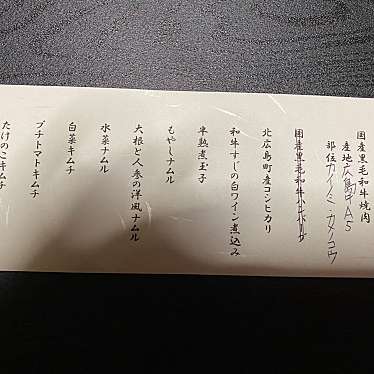 国産黒毛和牛焼肉
産地広島牛A5
部位カイノミ カメノコウ
国産黒毛和牛ハンバーグ
北広島町産コシヒカリ
和牛すじの白ワイン煮込み
半熟煮玉子
もやしナムル
大根と人参の洋風ナムル
水菜ナムル
白菜キムチ
プチトマトキムチ
たけのこキムチ